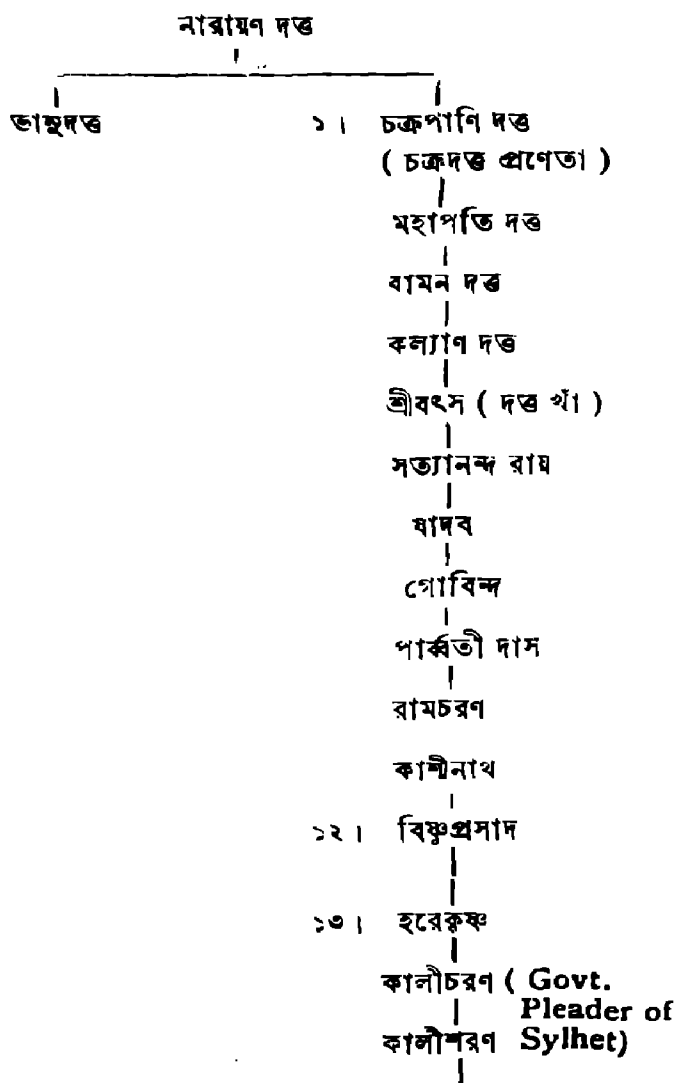 নারায়ণ দত্ত
ভানুদত্ত ১। চক্রপাণি দত্ত
( চক্রদত্ত প্রণেতা )
মহাপতি দত্ত
বামন দত্ত
কল্যাণ দত্ত
শ্রীবৎস ( দত্ত খাঁ )
সত্যানন্দ রায়
যাদব
গোবিন্দ
পার্ব্বতী দাস
রামচরণ
কাশীনাথ
১২। বিষ্ণুপ্রসাদ
১৩। হরেকৃষ্ণ
কালীচরণ ( Govt.
Pleader of
কালীশরণ Sylhet)